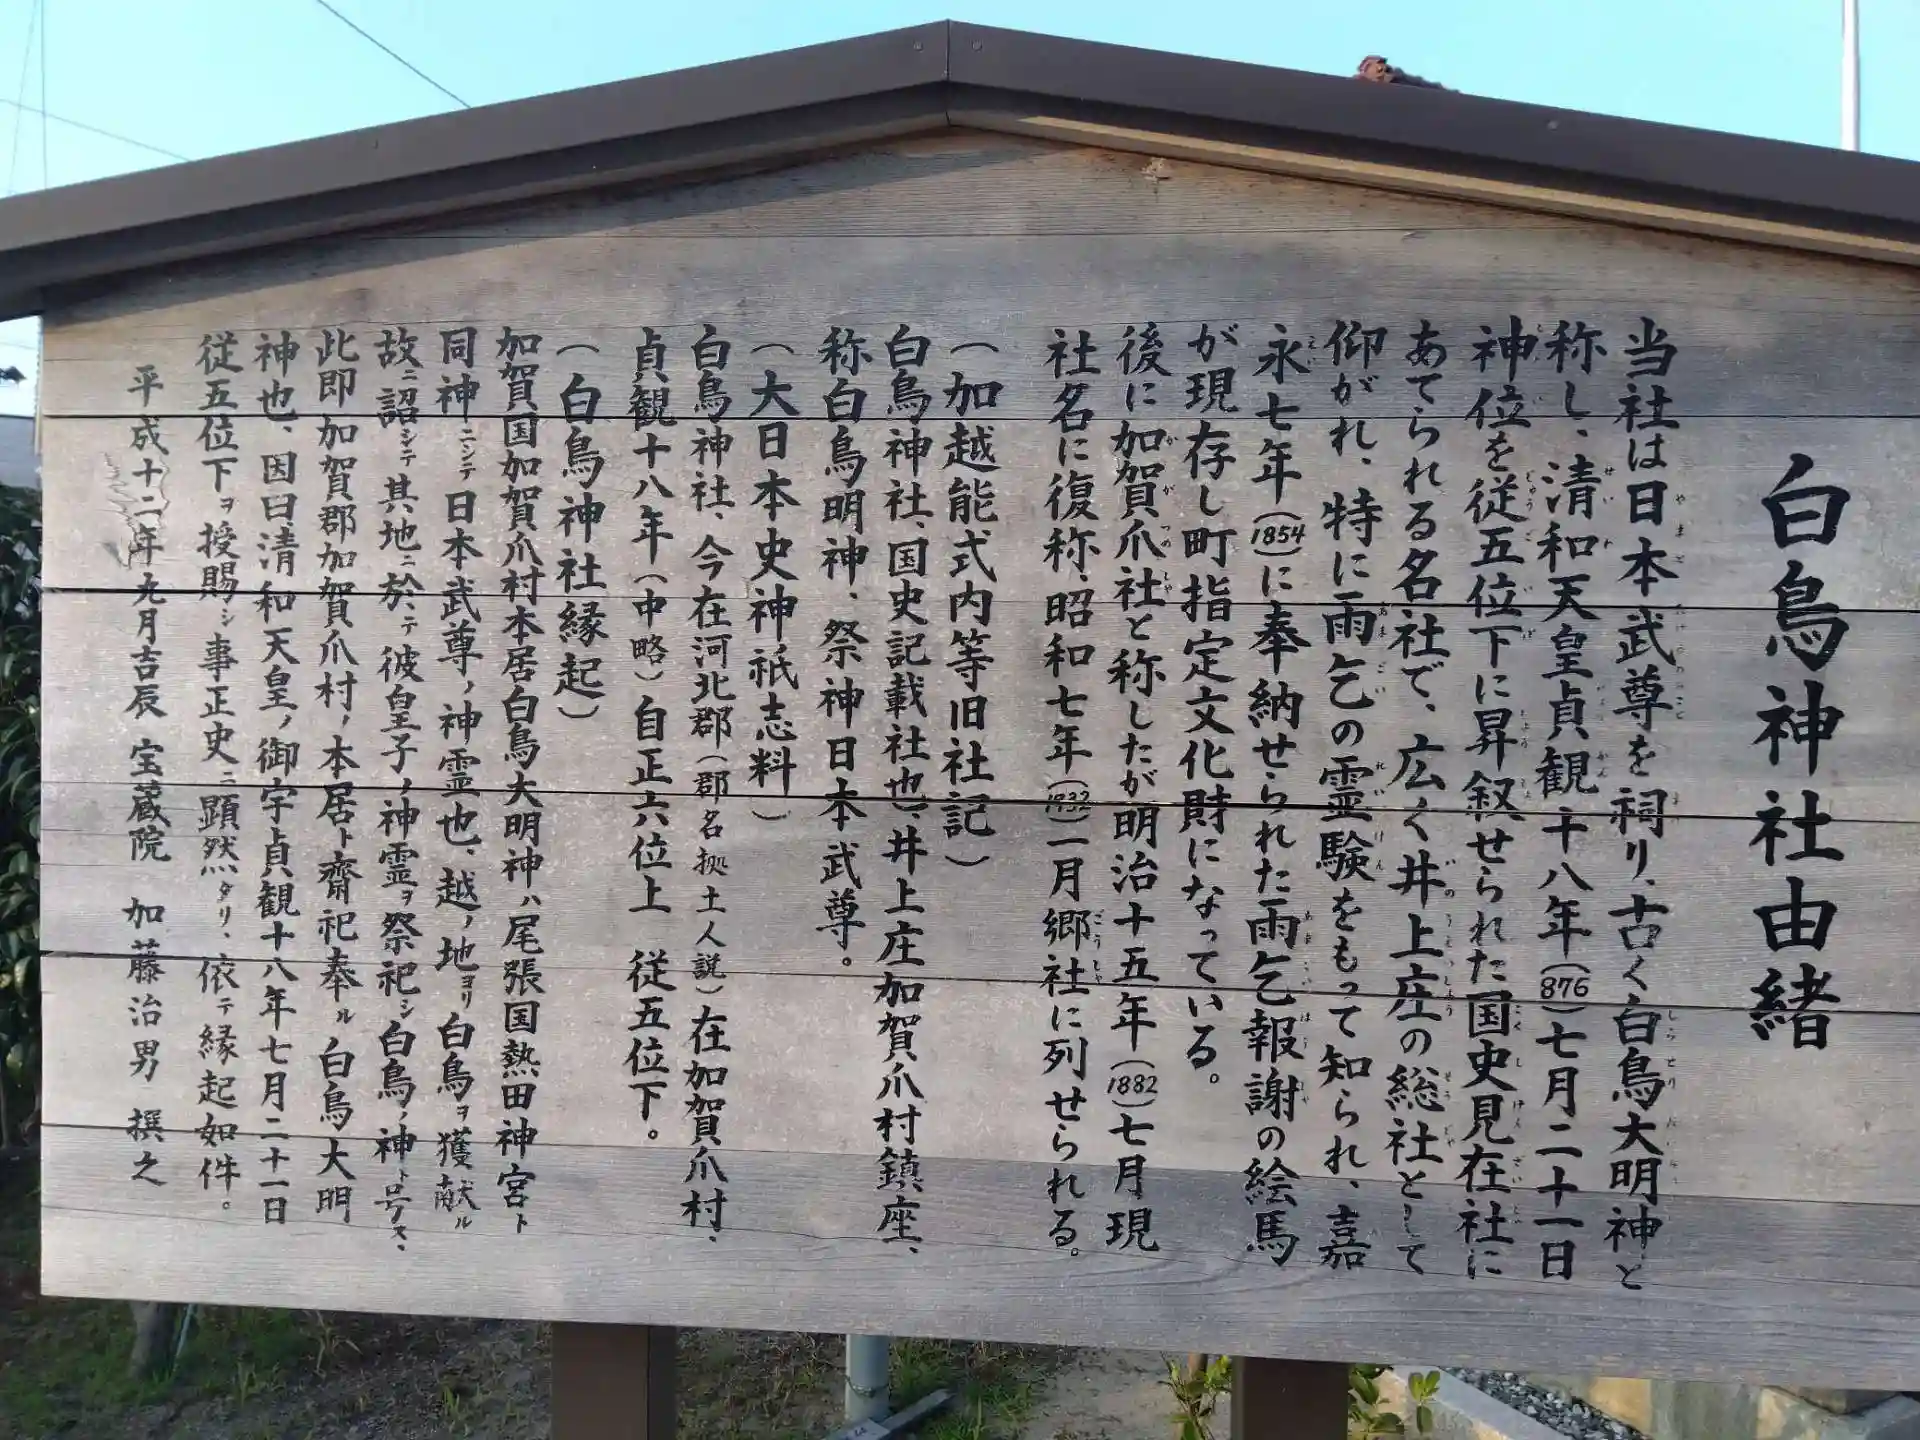 白鳥神社由緒
当社は日本武尊を祠り、古く白鳥大明神と
称し、清和天皇貞観十八年(876)七月二十一日
神位を従五位下に昇叙せられた国史見在社に
あてられる名社で、広く井上庄の総社として
仰がれ、特に雨乞の霊験をもって知られ、嘉
永七年(1854)に奉納せられた雨乞報謝の絵馬
が現存し町指定文化財になっている。
後に加賀爪社と称したが明治十五年(1882)七月現
社名に復称、昭和七年(1932)二月郷社に列せられる。
(加越能式内等旧社記)
白鳥神社、国史記載社也、井上庄加賀爪村鎮座、
称白鳥明神、祭神日本武尊。
(大日本史神祇志料)
白鳥神社、今在河北郡(郡名拠土人説)在加賀爪村、
貞観十八年(中略)自正六位上 従五位下。
(白鳥神社縁起)
加賀国加賀爪村本居白鳥大明神ハ尾張国熱田神宮ト
同神ニシテ日本武尊ノ神霊也、越ノ地ヨリ白鳥ヲ獲献ル
故ニ詔シテ其ノ地ニ於テ彼皇子ノ神霊ヲ祭祀シ白鳥ノ神ト号ス、
此即加賀郡加賀爪村ノ本居ト齋祀奉ル白鳥大明
神也、因曰清和天皇ノ御宇貞観十八年七月二十一日
従五位下ヲ授賜シ事正史ニ顕然タリ、依テ縁起如件。
平成十二年九月吉辰 宝蔵院 加藤治男 撰之